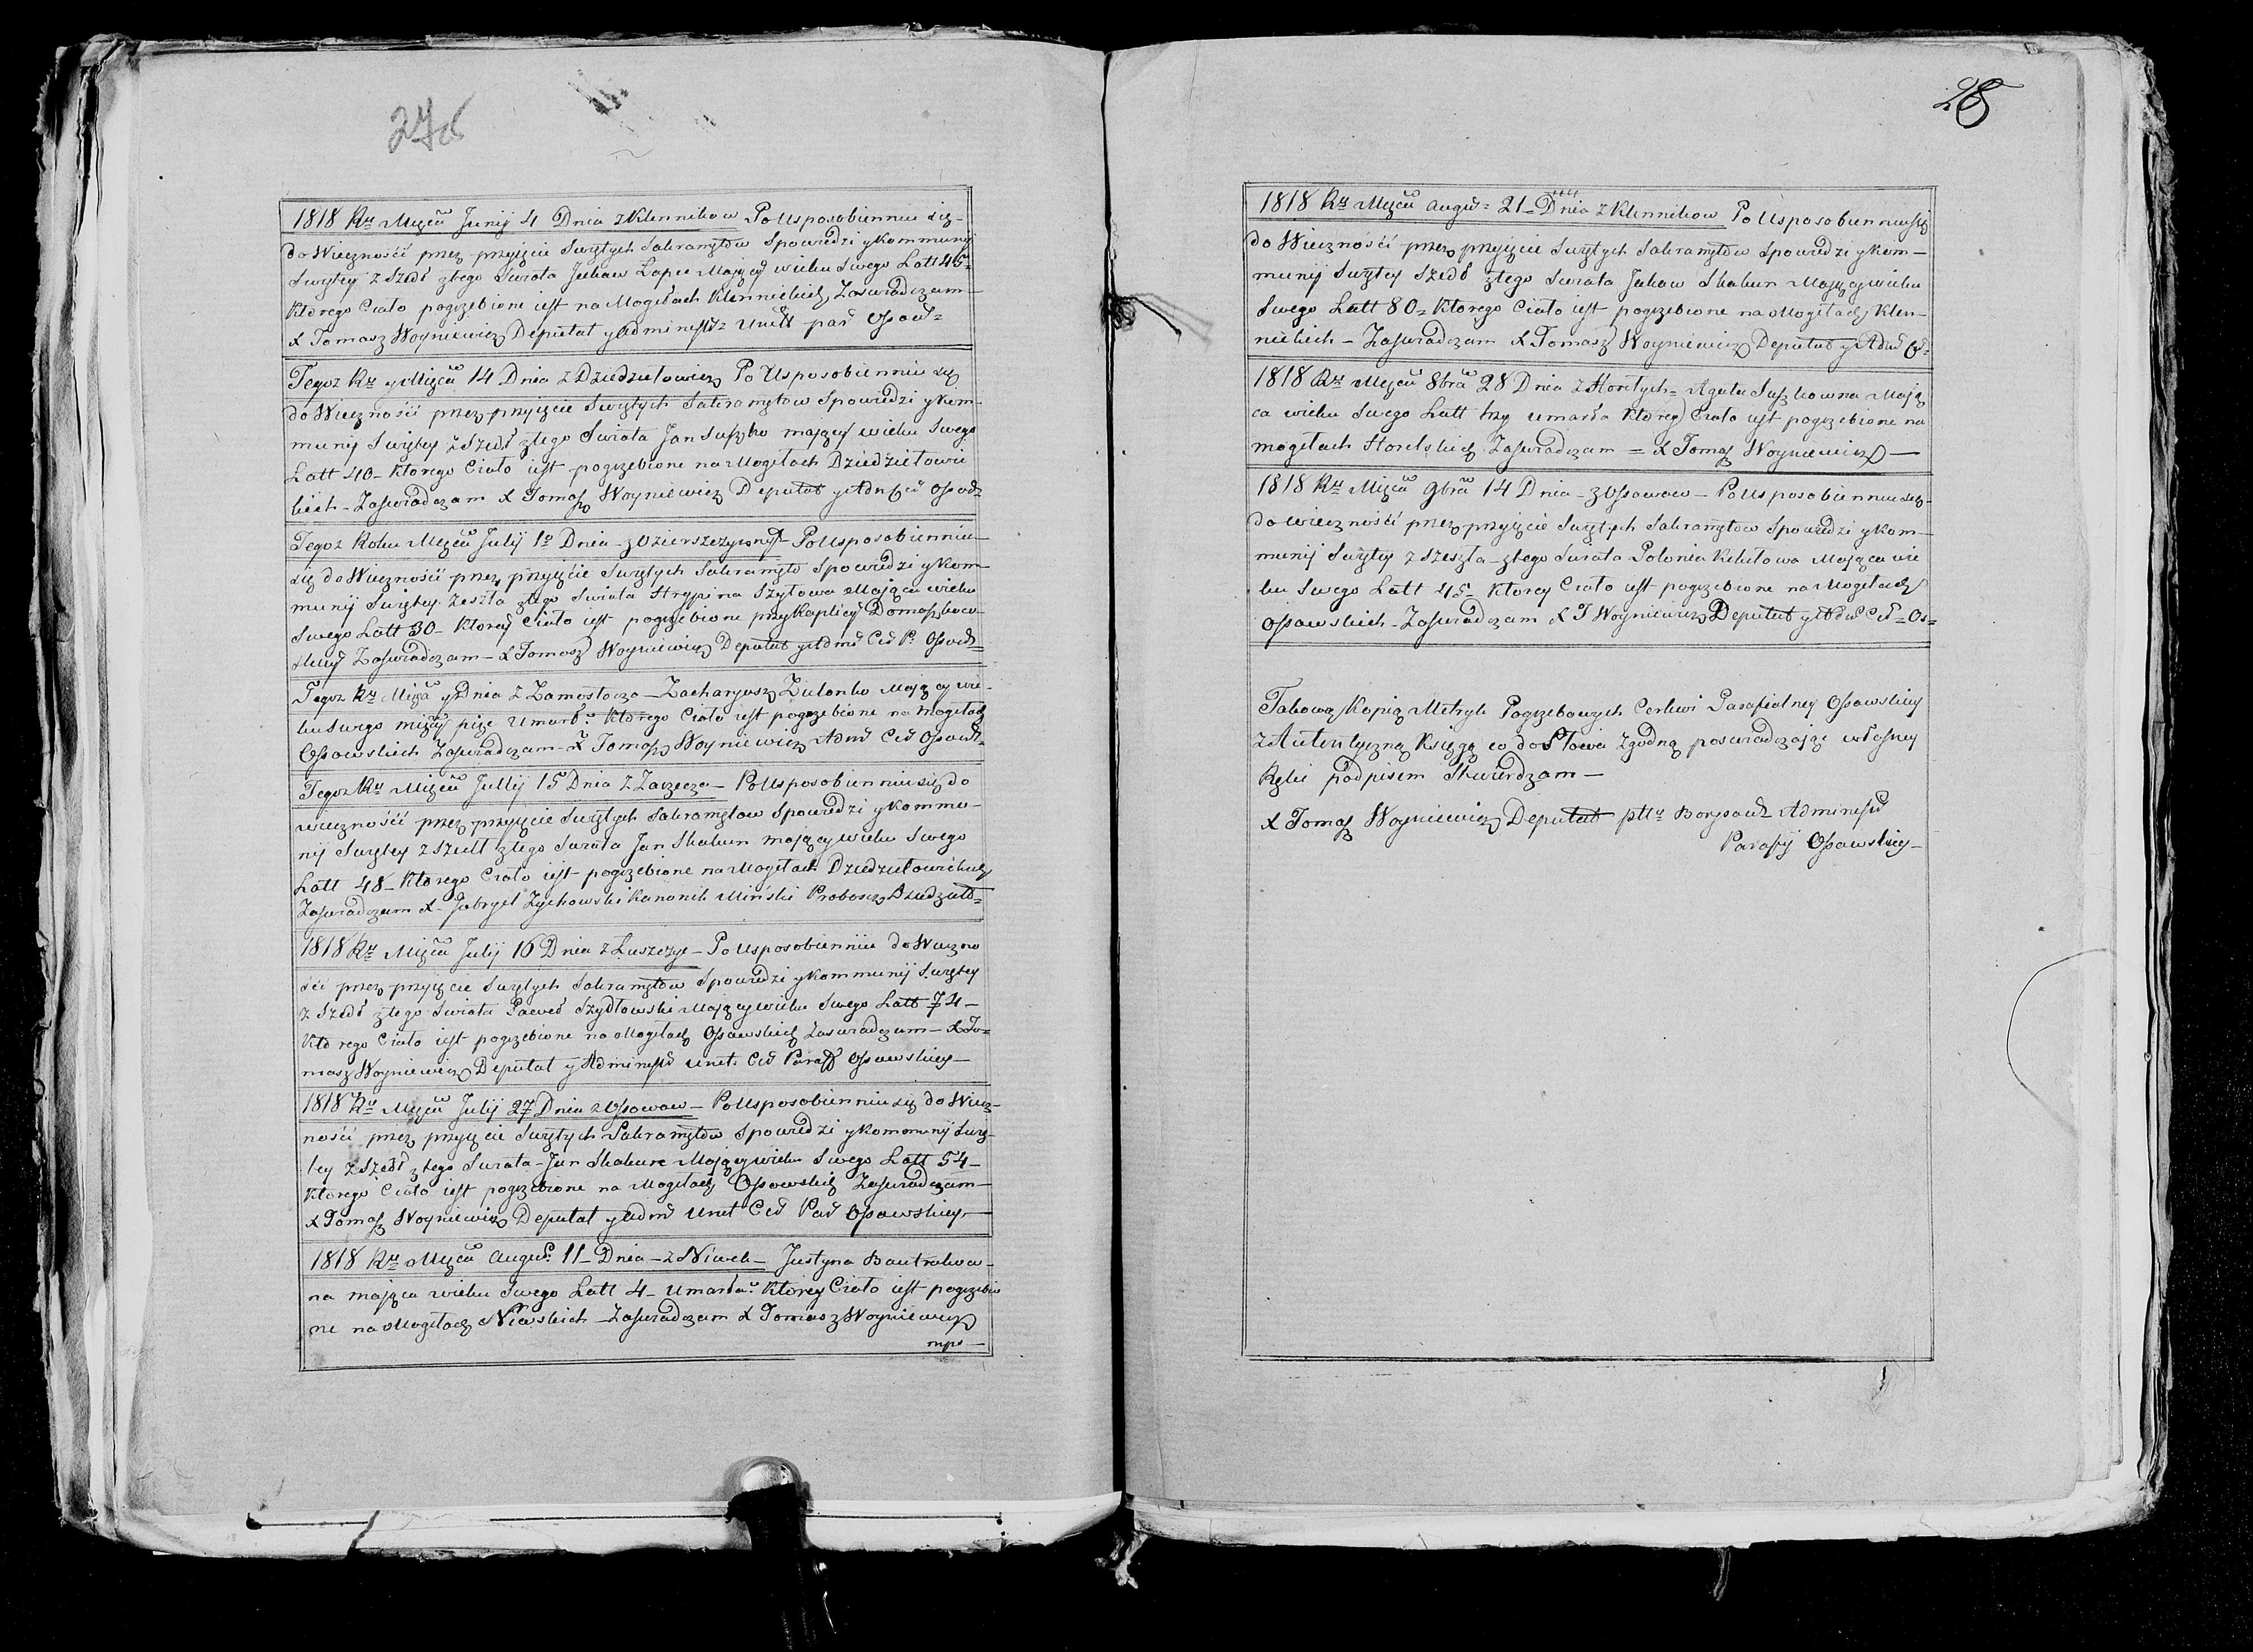 27об
1818 Rꝛ Mięcā Junij 4 Dnia z Klennikow Po Usposobienniu się-
do Wieczności przez przyięcie Swiętych Sakramętow Spowiedzi y Kommunij
Swiętey z Szedł ztego Swiata Jukaw Łapec Maiący wieku Swego Latt 46=
Ktorego Ciało pogrzebione iest na Mogiłach Klennickich Zaswiadczam
X Tomasz Woyniewicz Deputat y Administr Unitt par Ossow=
Tegoż Rꝛ y Mięcā 14 Dnia z Dziedziłowicz Po Usposobienniu się
do Wieczności przez przyięcie Swiętych Sakramętow Spowiedzi y Kom-
munij Swiętey z Szedł ztego Swiata Jan Suszko maiący wieku Swego
Latt 40- Ktorego Ciało iest pogrzebione na Mogiłach Dziedziłowic
kich - Zaswiadczam X Tomasz Woyniewicz Deputat y Adm Cer Ossow=
Tegoż Roku Mięcā Julij 1º Dnia - z Ozierszczyzny - Po Usposobienniu
się do Wieczności przez przyięcie Swiętych Sakramęto Spowiedzi y Kom-
munij Swiętey Zeszła ztego Swiata Hrypina Szyłowa Maiąca wieku
Swego Latt 30- Ktorey Ciało iest pogrzebione przy Kaplicy Domaszkow-
skiey Zaswiadczam - X Tomasz Woyniewicz Deputat y Adm Cer P. Ossow=
Tegoż Rꝛ Mięcā y Dnia z Zamostocza - Zacharyasz Zulonko Maiący wie-
ku Swego mięcy pięc Umarł: Ktorego Ciało iest pogrzebione na Mogiłach
Ossowskich Zaswiadczam - X Tomasz Woyniewicz Adm Cer Ossow=
Tegoż Rꝛ Mięcā Jullij 15 Dnia z Zarzecza - Po Usposobienniu się do
wieczności przez przyięcie Swiętych Sakramętow Spowiedzi y Kommu-
nij Swiętey z Szedł ztego Swiata Jan Skakun maiący wieku Swego
Latt 48- Ktorego Ciało iest pogrzebione na Mogiłach Dziedziłowickich
Zaswiadczam X. Gabryel Zychowski Kanonik Miński Proboszcz Dziedziłł=
1818 Rꝛ Mięcā Julij 16 Dnia z Łuszczyc - Po Usposobienniu do Wieczno
ści przez przyięcie Swiętych Sakramętow Spowiedzi y Kommunij Swiętey
z Szedł ztego Swiata Paweł Szydłowski Maiący wieku Swego Latt 74-
Ktorego Ciało iest pogrzebione na Mogiłach Ossowskich Zaswiadczam - X To=
masz Woyniewicz Deputat y Administr Unit. Cer Paraff Ossowskiey -
1818 Rꝛ Mięcā Julij 27 Dnia z Ossowow - Po Usposobienniu się do Wiecz-
ności przez przyięcie Swiętych Sakramętow Spowiedzi y Kommunij Swię-
tey z Szedł ztego Swiata - Jan Skakun Maiący wieku Swego Latt 54-
Ktorego Ciało iest pogrzebione na Mogiłach Ossowskich Zaswiadczam -
X Tomasz Woyniewicz Deputat y Adm Unit Cer Par Ossowskiey -
1818 Rꝛ Mięcā Augus: 11- Dnia - z Niwek - Justyna Bautrukow-
na maiąca wieku Swego Latt 4- Umarła: Ktorey Ciało iest pogrzebio
ne na Mogiłach Niwskich - Zaswiadczam X Tomasz Woyniewicz
mps -
28
1818 Rꝛ Mięcā Augus= 21- Dnia z Klennikow Po Usposobienniu się
do Wieczności przez przyięcie Swiętych Sakramętow Spowiedzi y Kom-
munij Swiętey Szedł ztego Swiata Jakow Skakun Maiący wieku
Swego Latt 80= Ktorego Ciało iest pogrzebione na Mogiłach Klen-
nickich - Zaswiadczam X Tomasz Woyniewicz Deputat y Adm Os=
1818 Rꝛ Mięcā 8brā 28 Dnia z Horełych= Agata Suszkowna Maią
ca wieku Swego Latt trzy umarła Ktorey Ciało iest pogrzebione na
mogiłach Horelskich Zaswiadczam = X Tomasz Woyniewicz -
1818 Rꝛ Mięcā 9brā 14 Dnia - z Ossowow - Po Usposobienniu się-
do wieczności przez przyięcie Swiętych Sakramętow Spowiedzi y Kom-
munij Swiętey z Szeszła - ztego Swiata Polonia Kikiłowa Maiąca wie
ku Swego Latt 45- Ktorey Ciało iest pogrzebione na Mogiłach
Ossowskich - Zaswiadczam X T Woyniewicz Deputat y Adm Cer= Os=
Takową Kopią Metryk Pogrzebowych Cerkwi Parafialney Ossowskiey
z Autentyczną Księgą co do Słowa Zgodną poswiadczaiąc własney
Ręki podpisem Stwierdzam -
X Tomasz Woyniewicz Deputat pttu Borysow Administr
Parafij Ossowskiey -